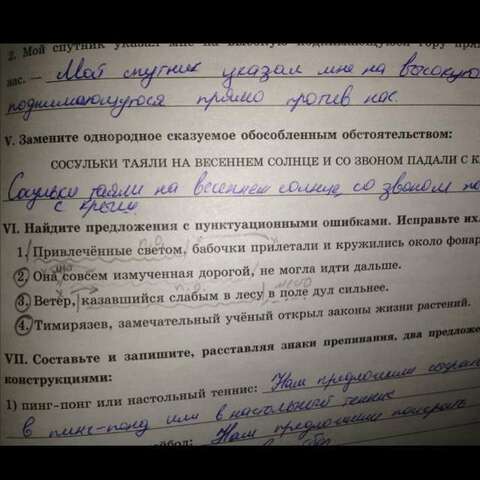 2. Мой спутник указал мне на высокую поднимающуюся гору
нас. — Мой спутник указал мне на высокую
поднимающуюся прямо против нас.
V. Замените однородное сказуемое обособленным обстоятельством:
СОСУЛЬКИ ТАЯЛИ НА ВЕСЕННЕМ СОЛНЦЕ И СО ЗВОНОМ ПАДАЛИ С К
Сосульки таяли на весеннем солнце со звоном
с крыши.
VI. Найдите предложения с пунктуационными ошибками. Исправьте их.
1. Привлечённые светом, бабочки прилетали и кружились около фонар
2. Она, совсем измученная дорогой, не могла идти дальше.
3. Ветер, казавшийся слабым в лесу в поле дул сильнее.
4. Тимирязев, замечательный учёный открыл законы жизни растений.
VII. Составьте и запишите, расставляя знаки препинания, два предложе
конструкциями:
1) пинг-понг или настольный теннис: Нам предложили
в пинг-понг или в настольный теннис
Нам предложили поиграть